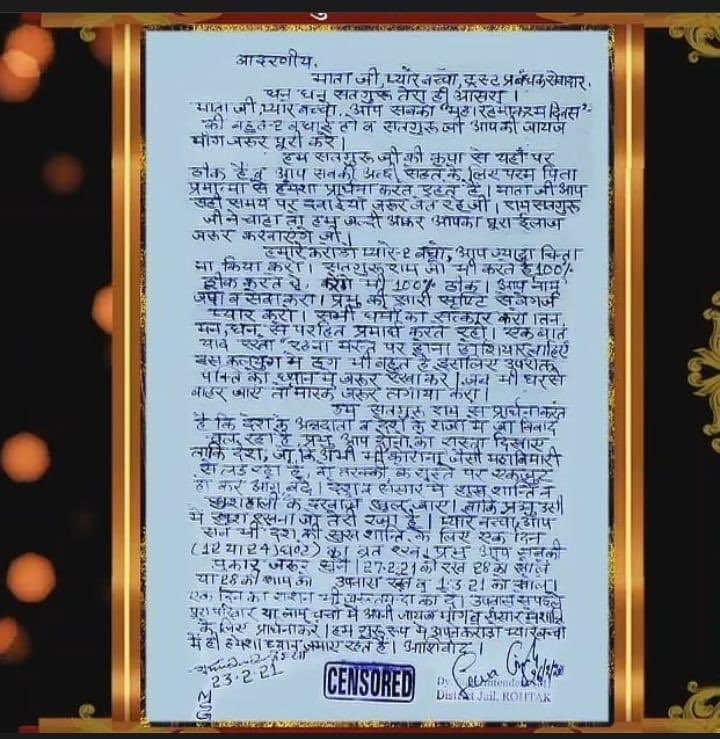 आदरणीय,
माता जी, प्यारे बच्चों, ट्रस्ट प्रबंधक सेवादार,
धन धन सतगुरु तेरा ही आसरा।
माता जी, प्यारे बच्चों, आप सबको "महा रहमोकरम दिवस"
की बहुत-2 बधाई हो व सतगुरु जी आपकी जायज
माँग जरूर पूरी करें।
हम सतगुरु जी की कृपा से यहाँ पर
ठीक हैं व आप सबकी अच्छी सेहत के लिए परम पिता
परमात्मा से हमेशा प्रार्थना करते रहते हैं। माता जी आप
सही समय पर दवाईयां जरूर लेते रहें जी। राम सतगुरु
जी ने चाहा तो हम जल्दी आकर आपका पूरा ईलाज
जरूर करवाएंगे जी।
हमारे करोड़ों प्यारे-2 बच्चों, आप ज्यादा चिंता
ना किया करो। सतगुरु राम जो भी करते हैं 100%
ठीक करते थे, करेंगे भी 100% ठीक। आप नाम
जपो व सेवा करो। प्रभु की सारी सृष्टि से बेगर्ज
प्यार करो। सभी धर्मों का सत्कार करो। तन,
मन, धन, से परहित परमार्थ करते रहो। एक बात
याद रखो "रहना मस्त पर होना होशियार चाहिए"
इस कलयुग में ठग भी बहुत हैं इसलिए उपरोक्त
पंक्ति को ध्यान में जरूर रखा करें। जब भी घर से
बाहर जाएं तो मास्क जरूर लगाया करो।
हम सतगुरु राम से प्रार्थना करते
हैं कि देश के अन्नदाता व देश के राजा में जो विवाद
चल रहा है, प्रभु आप दोनों को रास्ता दिखाएं
ताकि देश, जो कि अभी भी कोरोना जैसी महाबिमारी
से लड़ रहा है, वो तरक्की के रास्ते पर
हो कर आगे बढ़े। देश व संसार में सुख शान्ति व
खुशहाली के दरवाजे खुल जाएं। ताकि प्रभु उसी
में खुश रखना जो तेरी रजा है। प्यारे बच्चों, आप
सब भी देश की सुख शान्ति के लिए एक दिन
(12 या 24 घंटे) का व्रत रखें, प्रभु आप सबकी
पुकार जरूर सुनें। 27.2.21 को रखें 28 को खोलें
या 28 की शाम को उपवास रखें व 1.3.21 को खोलें।
एक दिन का राशन भी जरूरतमंदों को दें। उपवास से पहले
पूरा परिवार या नाम चर्चा में अपनी जायज माँग व संसार में शान्ति
के लिए प्रार्थना करें। हम गुरु रूप में अपने करोड़ों प्यारे बच्चों
में ही हमेशा ध्यान जमाए रहते हैं। आशीर्वाद।
23.2.21
MSG
CENSORED
District Jail, ROHTAK